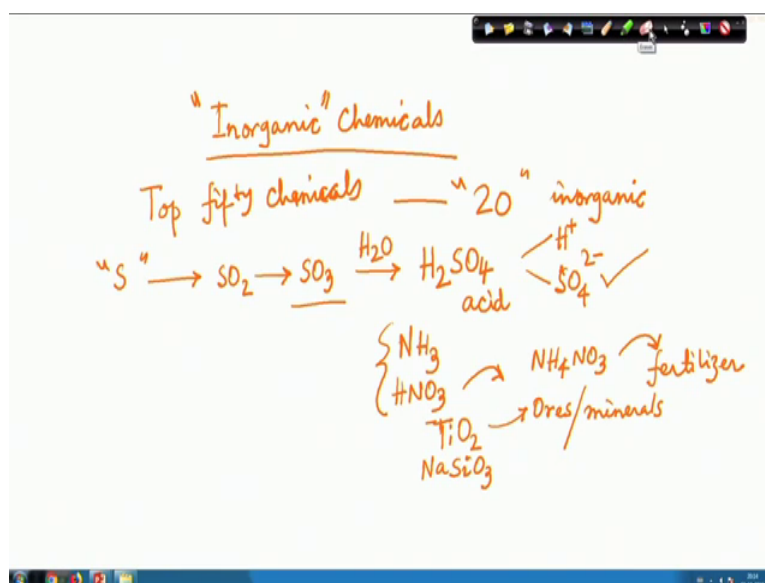 "Inorganic" Chemicals
Top fifty chemicals — "20" inorganic
"S" → SO2 → SO3 H2O → H2SO4 H+
acid SO4 2- ✓
{NH3
HNO3 → NH4NO3 → fertilizer
TiO2 → Ores/minerals
NaSiO3